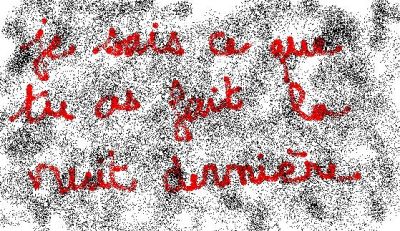 je sais ce que
tu as fait la
nuit dernière.